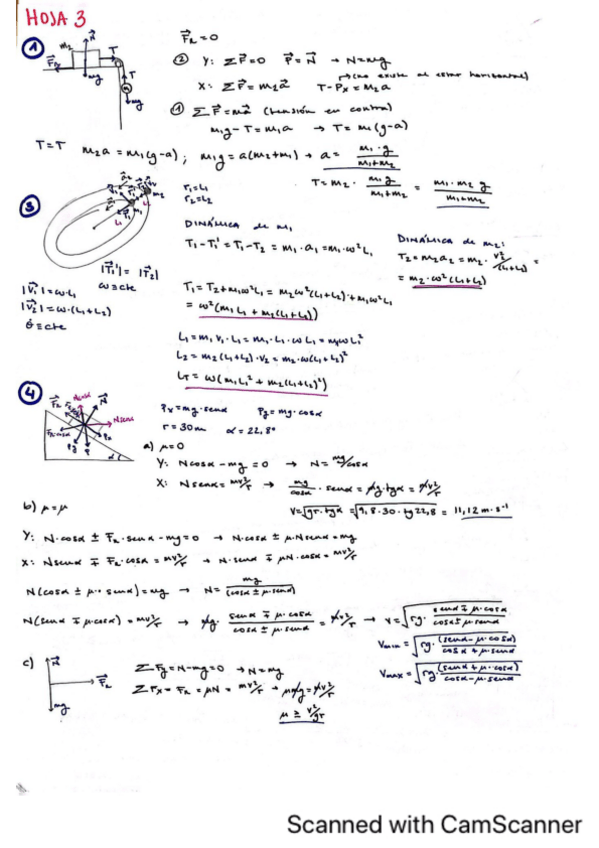 HOJA 3
①
F⃗R = 0
② Y: ΣF⃗=0  P⃗=N⃗ → N=mg
(no existe al estar horizontal)
X: ΣF⃗=m₂a⃗  T-Pₓ=m₂a
① ΣF⃗=ma⃗ (tensión en contra)
m₁g-T=m₁a → T=m₁(g-a)
T=T  m₂a=m₁(g-a); m₁g=a(m₂+m₁) → a = m₁·g / m₁+m₂
T=m₂· m₁g / m₁+m₂ = m₁·m₂ g / m₁+m₂
③
r₁=L₁
r₂=L₂
DINÁMICA de m₁
T₁-T₁'=T₁-T₂=m₁·a₁=m₁·ω²L₁
DINÁMICA de m₂:
T₂=m₂a₂=m₂· v₂²/(L₁+L₂) =
= m₂·ω²(L₁+L₂)
|T⃗₁'|=|T⃗₂|
ω≡cte
|V⃗₁|=ω·L₁
|V⃗₂|=ω·(L₁+L₂)
θ̇≡cte
T₁=T₂+m₁ω²L₁=m₂ω²(L₁+L₂)+m₁ω²L₁
= ω²(m₁L₁+m₂(L₁+L₂))
L₁=m₁v₁·L₁=m₁·L₁·ωL₁=m₁ωL₁²
L₂=m₂(L₁+L₂)·v₂=m₂·ω(L₁+L₂)²
LT=ω(m₁L₁²+m₂(L₁+L₂)²)
④
Pₓ=mg·senα  Py=mg·cosα
r=30m  α=22,8°
a) μ=0
Y: Ncosα-mg=0 → N=mg/cosα
X: Nsenα=mv²/r → mg/cosα·senα=mg·tgα=mv²/r
V=√gr·tgα=√9,8·30·tg22,8 = 11,12 m·s⁻¹
b) μ=μ
Y: N·cosα ± FR·senα-mg=0 → N·cosα ± μ·Nsenα=mg
X: Nsenα ∓ FR·cosα=mv²/r → N·senα ∓ μN·cosα=mv²/r
N(cosα ± μ·senα)=mg → N= mg/(cosα ± μ·senα)
N(senα ∓ μ·cosα)=mv²/r → mg· senα ∓ μ·cosα / cosα ± μ·senα = mv²/r → v=√rg· senα ∓ μ·cosα / cosα ± μ·senα
Vmin=√rg· (senα-μ·cosα) / cosα+μ·senα
Vmax=√rg· (senα+μ·cosα) / cosα-μ·senα
c)
ΣFy=N-mg=0 → N=mg
ΣFx=FR=μN=mv²/r → μmg=mv²/r
μ ≥ v²/gr
Scanned with CamScanner